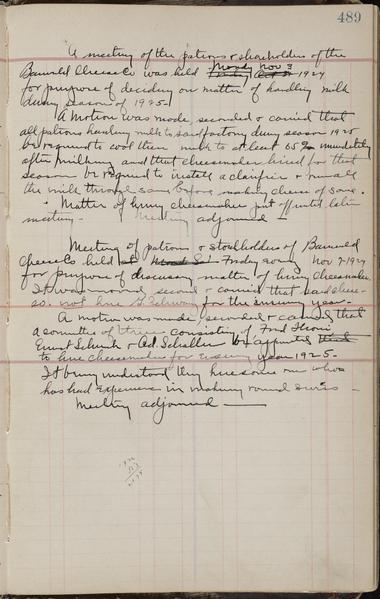 489
A meeting of the patrons & shareholders of the
Barnveld Cheese Co was held Mond Nov 3 1924
for purpose of deciding on matter of handling milk
during season of 1925.
A Motion was made, seconded & carried that
all patrons hauling milk to said factory during season 1925
be required to cool their milk to at least 65% immediately
after milking and that cheesemaker hired for that
season be required to install a clarifier & run all
the milk through same before making cheese of same.
Matter of hiring cheesemaker put off until later
meeting. Meeting adjourned
Meeting of patrons & stockholders of Barnveld
Cheese Co held Friday evng Nov 7-1924
for purpose of discussing matter of hiring cheesemaker.
It was moved, second & carried that said cheese
co. not hire G. for the ensuing year.
A motion was made seconded & carried that
a committee of three consisting of Fred Thoni
Ernst Schenk & Ad. Schaller be appointed
to hire cheesemaker for ensuing year 1925.
It being understood they hire some one who
has had experience in making round swiss
Meeting adjourned